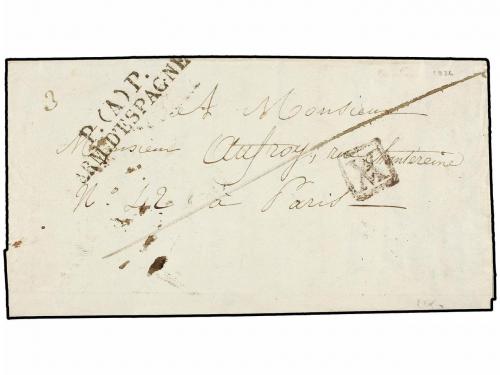 P. (A) P.
ARM. D'ESPAGNE
3
A Monsieur
Monsieur Aufroy, rue Chantereine
N.° 42 à Paris
1826